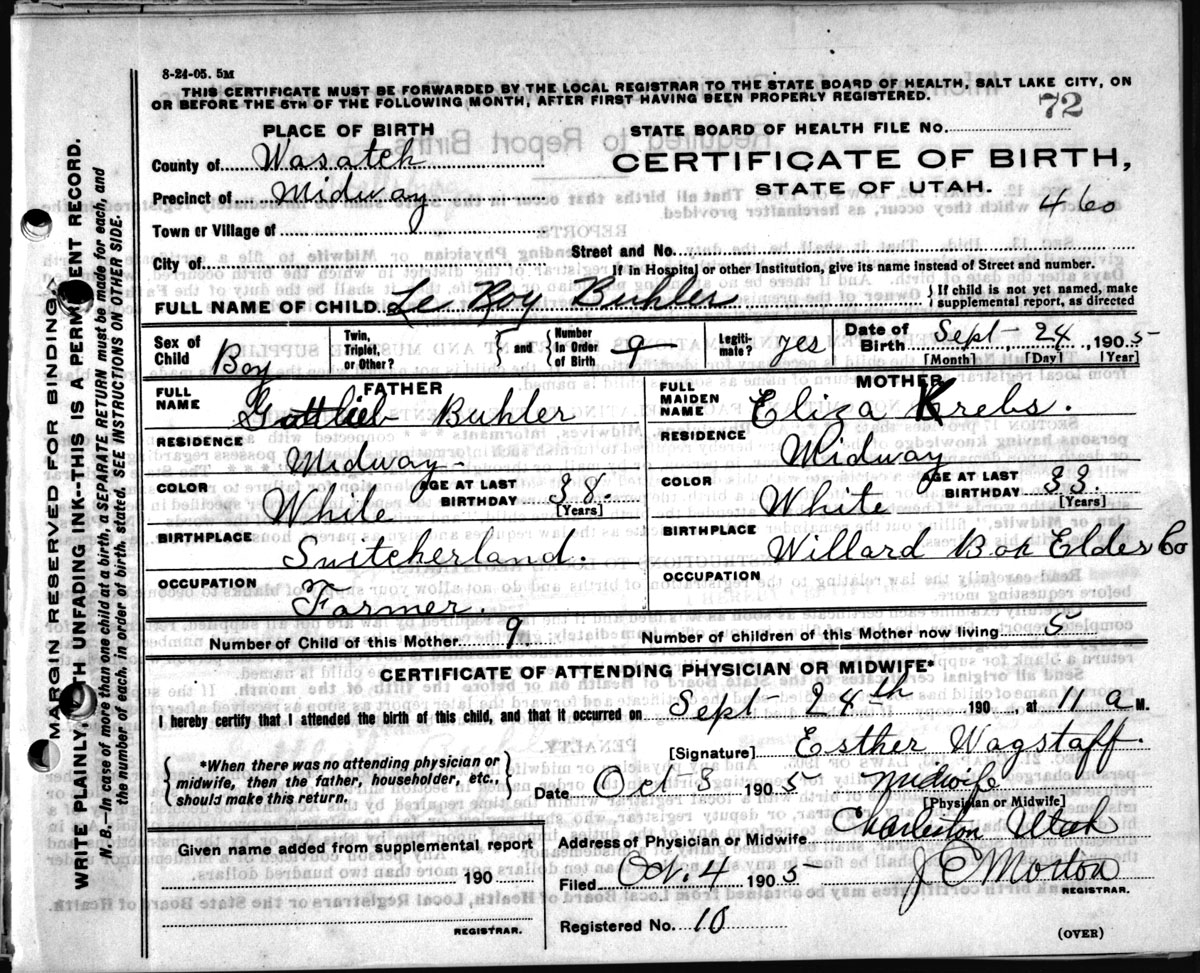 8-24-05. 5M
THIS CERTIFICATE MUST BE FORWARDED BY THE LOCAL REGISTRAR TO THE STATE BOARD OF HEALTH, SALT LAKE CITY, ON
OR BEFORE THE 5TH OF THE FOLLOWING MONTH, AFTER FIRST HAVING BEEN PROPERLY REGISTERED.
72
PLACE OF BIRTH
STATE BOARD OF HEALTH FILE No.
County of Wasatch
CERTIFICATE OF BIRTH,
Precinct of Midway
STATE OF UTAH.
460
Town or Village of
Street and No.
City of
If in Hospital or other Institution, give its name instead of Street and number.
FULL NAME OF CHILD Le Roy Buhler
{ If child is not yet named, make
supplemental report, as directed
Sex of Child Boy
Twin, Triplet, or Other?
} and {
Number In Order of Birth 9
Legiti- mate? yes
Date of Birth Sept 24, 1905
[Month] [Day] [Year]
FATHER
FULL NAME Gottlieb Buhler
RESIDENCE Midway
COLOR White
AGE AT LAST BIRTHDAY 38. [Years]
BIRTHPLACE Switcherland.
OCCUPATION Farmer.
MOTHER
FULL MAIDEN NAME Eliza Krebs.
RESIDENCE Midway
COLOR White
AGE AT LAST BIRTHDAY 33. [Years]
BIRTHPLACE Willard Box Elder Co
OCCUPATION
Number of Child of this Mother 9.
Number of children of this Mother now living 5
CERTIFICATE OF ATTENDING PHYSICIAN OR MIDWIFE*
I hereby certify that I attended the birth of this child, and that it occurred on Sept 24th 190 , at 11 a M.
{ *When there was no attending physician or
midwife, then the father, householder, etc.,
should make this return. }
[Signature] Esther Wagstaff.
Date Oct 3 1905
Midwife
[Physician or Midwife]
Given name added from supplemental report
190
REGISTRAR.
Address of Physician or Midwife Charleston Utah
Filed Oct. 4 1905
J E Morton
REGISTRAR.
Registered No. 10
(OVER)
MARGIN RESERVED FOR BINDING
WRITE PLAINLY, WITH UNFADING INK--THIS IS A PERMANENT RECORD.
N. B.—In case of more than one child at a birth, a SEPARATE RETURN must be made for each, and
the number of each, in order of birth, stated. SEE INSTRUCTIONS ON OTHER SIDE.